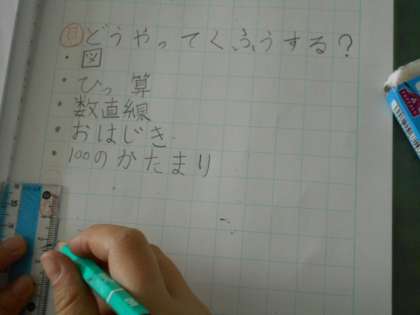 日 どうやってくふうする?
・図
・ひっ算
・数直線
・おはじき
・100のかたまり